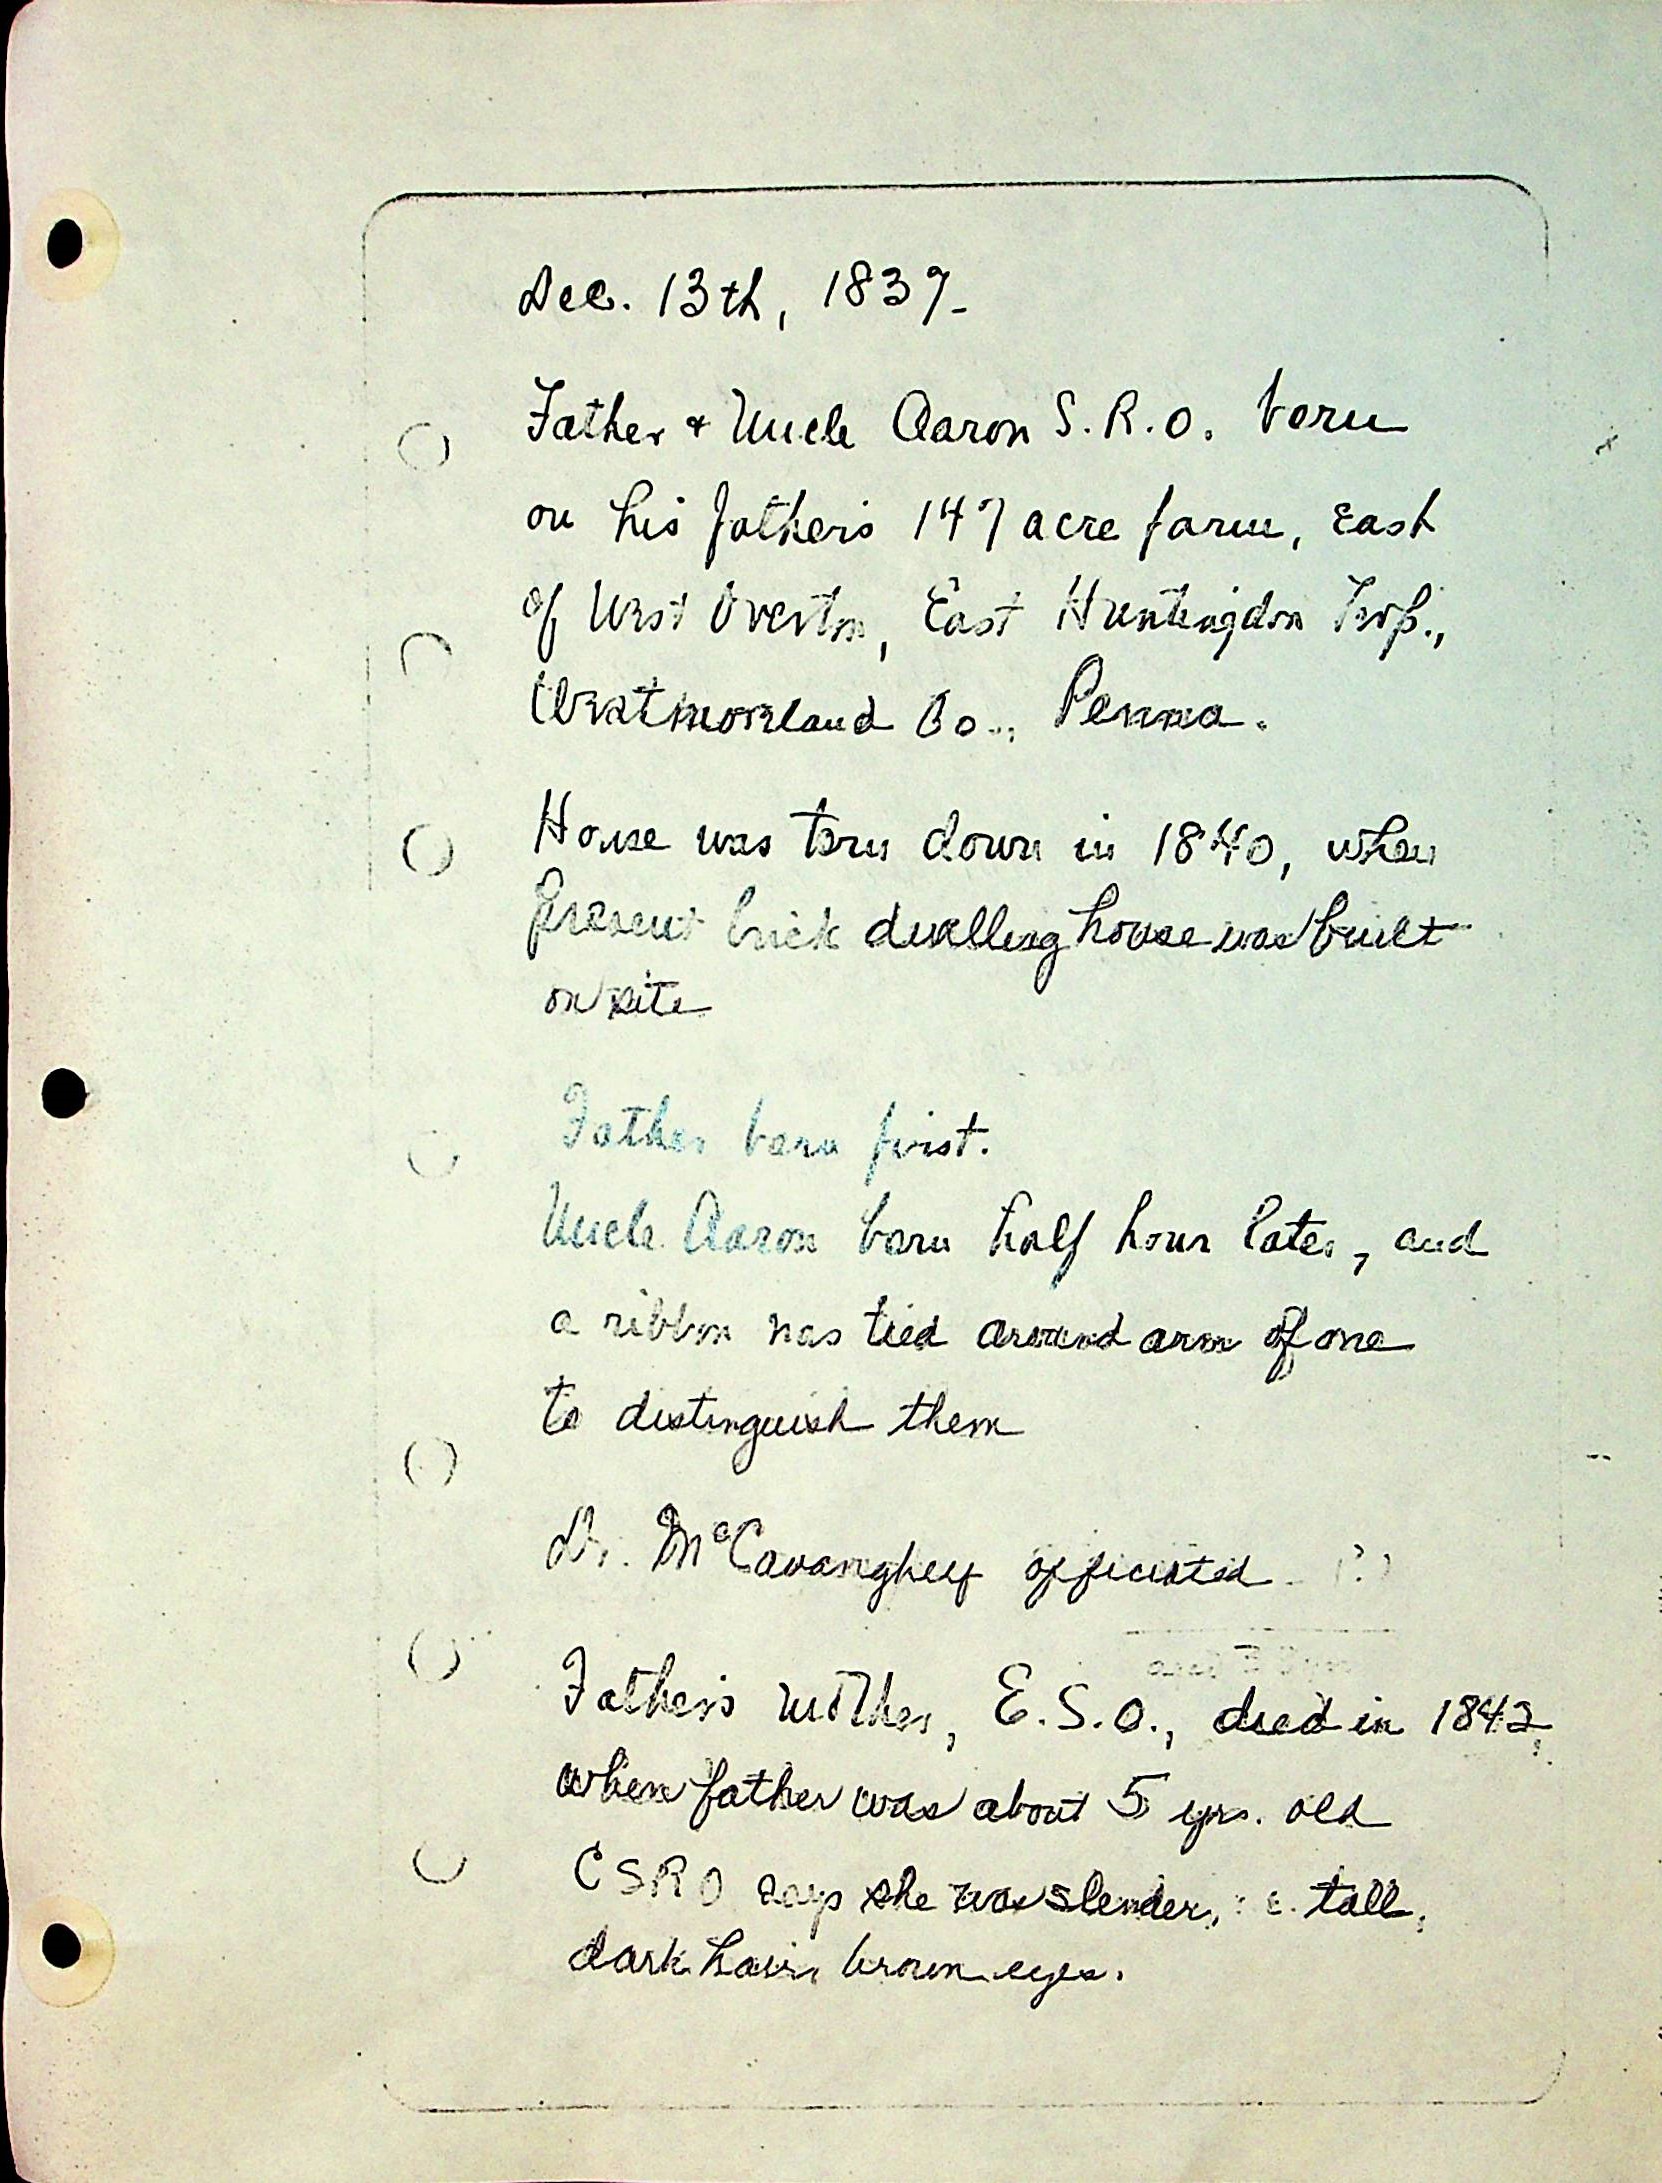 Dec. 13th, 1837-
Father & Uncle Aaron S.R.O. born
on his father's 147 acre farm, East
of West Overton, East Huntingdon Twp.,
Westmoreland Co., Penna.
House was torn down in 1840, when
present brick dwelling house was built
on site
Father born first.
Uncle Aaron born half hour later, and
a ribbon was tied around arm of one
to distinguish them
Dr. McCavanghey officiated. (?)
Father's mother, E.S.O., died in 1842,
when father was about 5 yrs. old
CSRO says she was slender, tall,
dark hair, brown eyes.